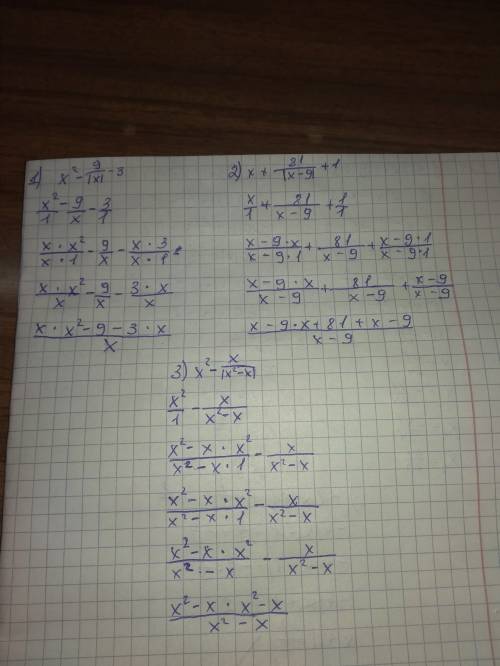 1) x² - 9/|x| - 3
x²/1 - 9/x - 3/1
x · x²/x · 1 - 9/x - x · 3/x · 1 =
x · x²/x - 9/x - 3 · x/x
x · x² - 9 - 3 · x/x
2) x + 81/|x - 9| + 1
x/1 + 81/x - 9 + 1/1
x - 9 · x/x - 9 · 1 + 81/x - 9 + x - 9 · 1/x - 9 · 1
x - 9 · x/x - 9 + 81/x - 9 + x - 9/x - 9
x - 9 · x + 81 + x - 9/x - 9
3) x² - x/|x² - x|
x²/1 - x/x² - x
x² - x · x²/x² - x · 1 - x/x² - x
x² - x · x²/x² - x · 1 - x/x² - x
x² - x · x²/x² · - x - x/x² - x
x² - x · x² - x/x² - x